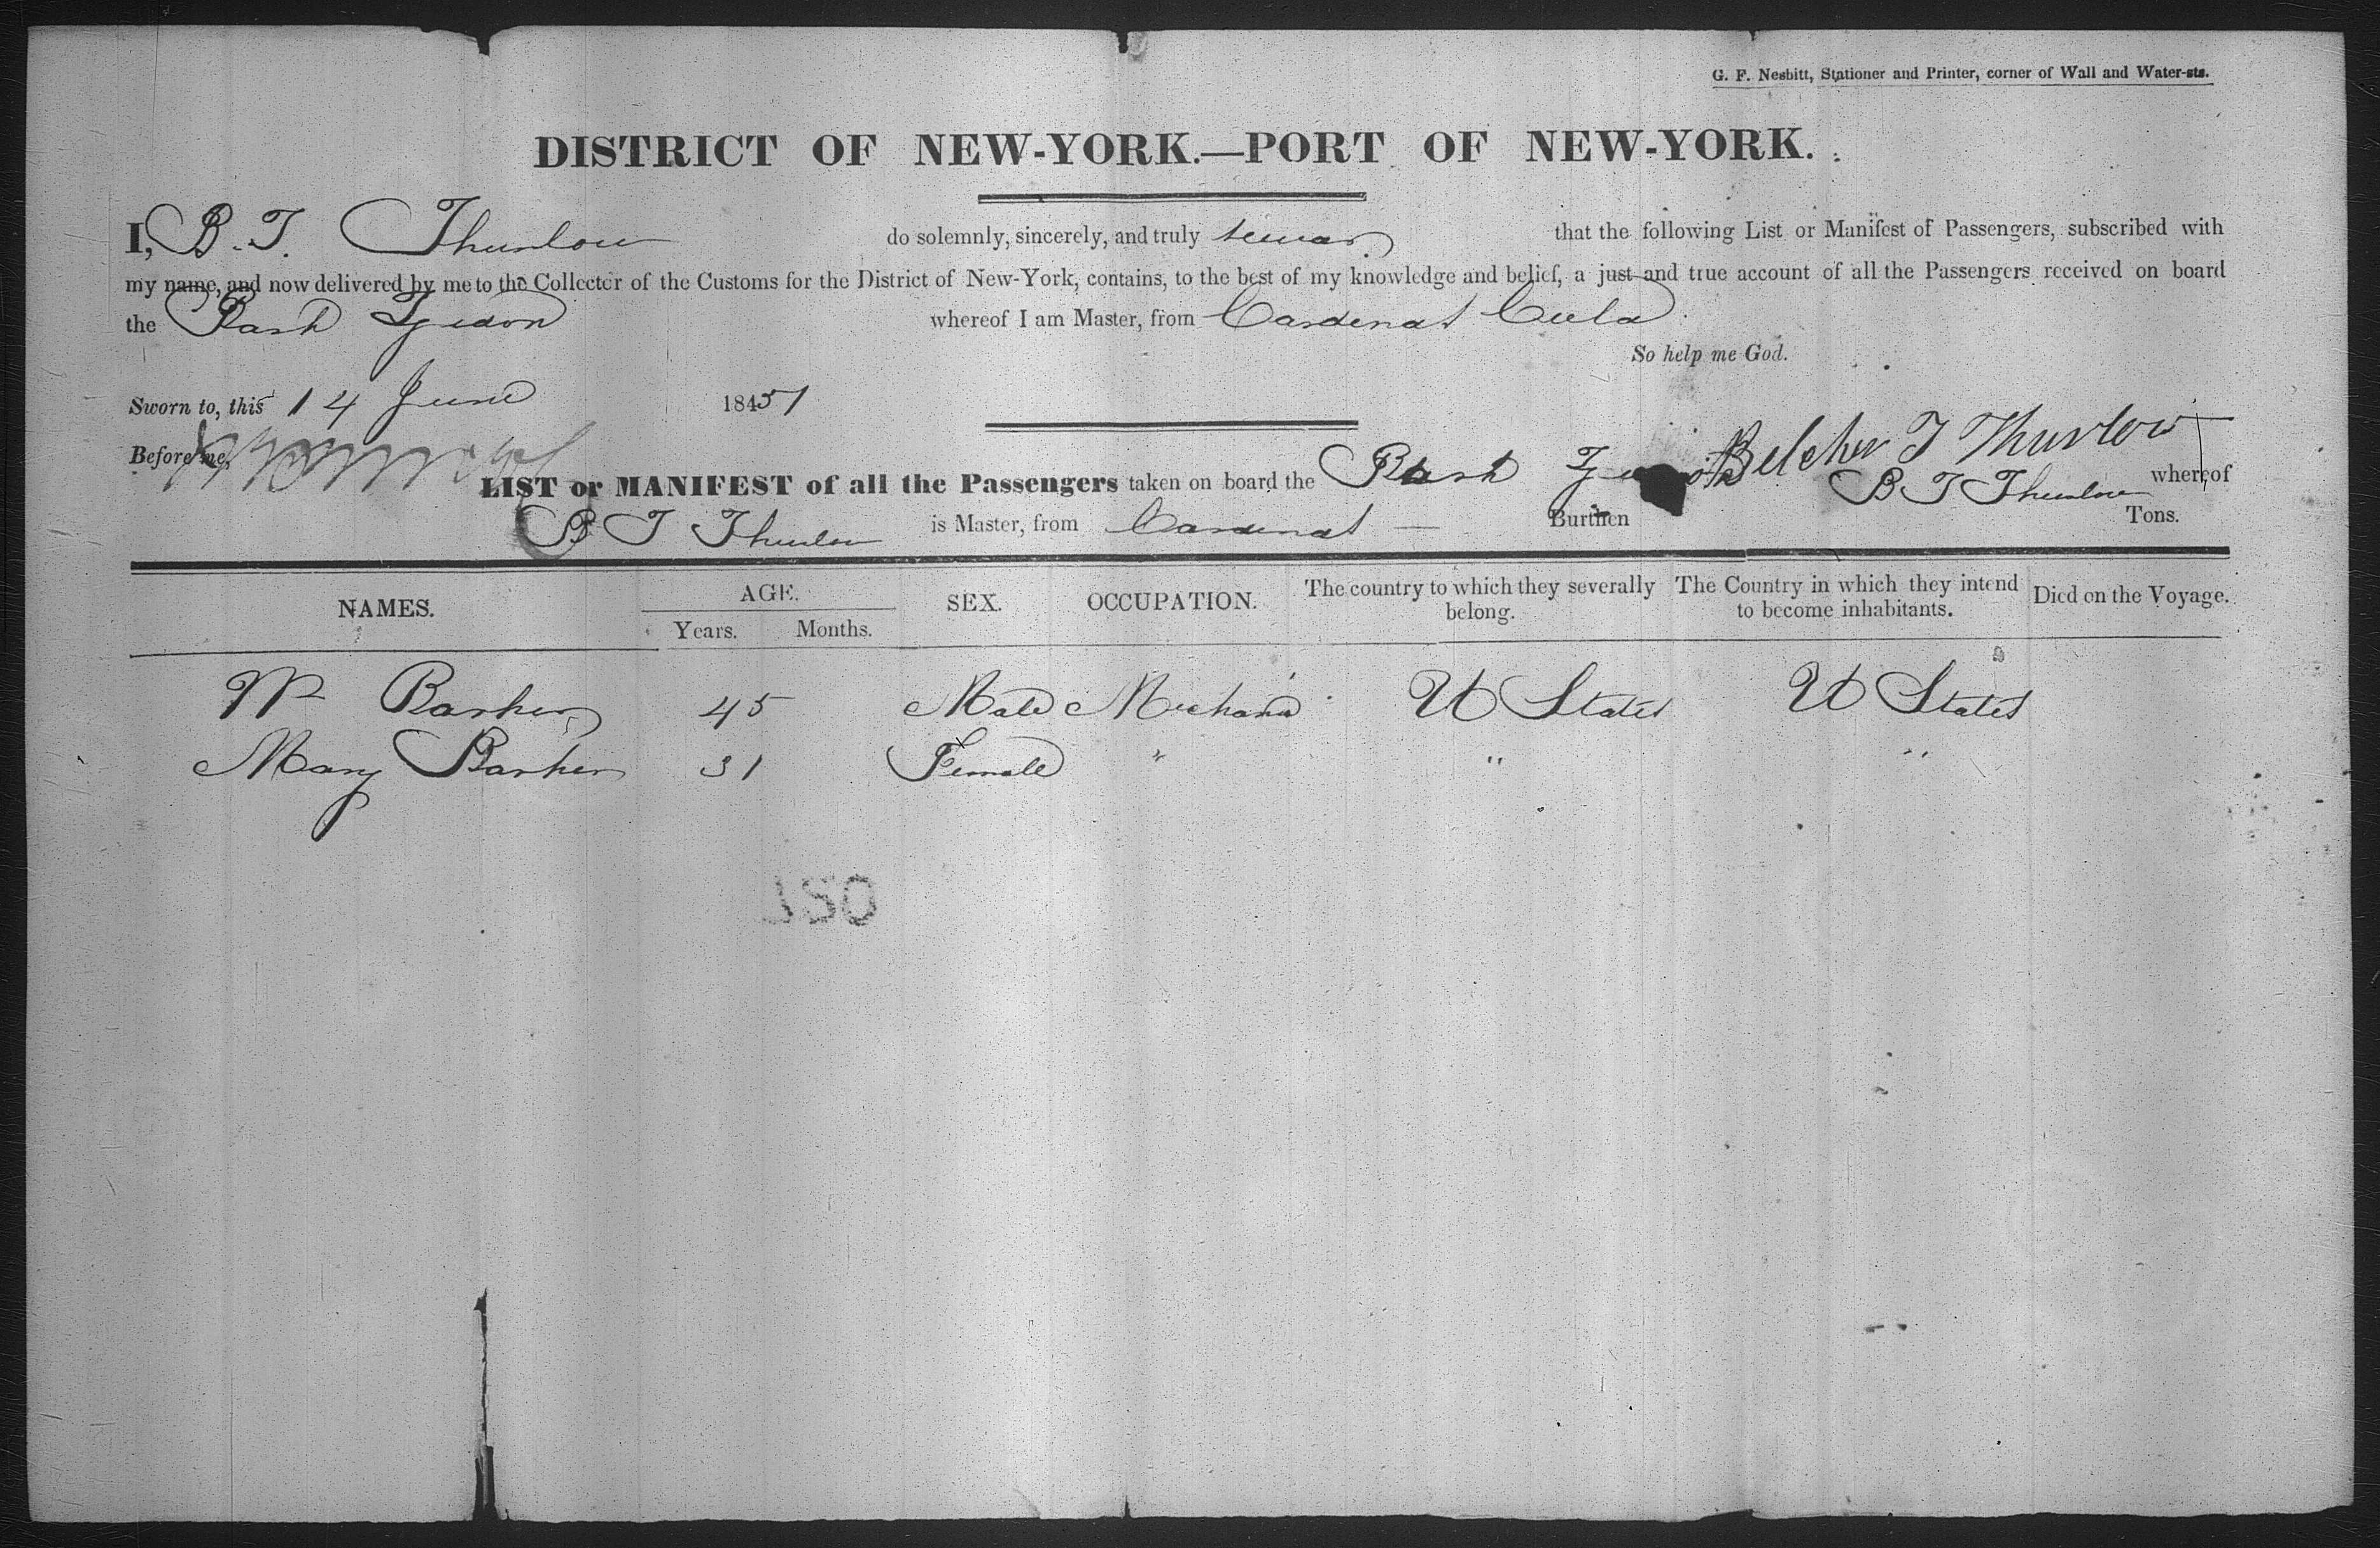 G. F. Nesbitt, Stationer and Printer, corner of Wall and Water-sts.
DISTRICT OF NEW-YORK.—PORT OF NEW-YORK.
I, B. T. Thurlow do solemnly, sincerely, and truly swear that the following List or Manifest of Passengers, subscribed with
my name, and now delivered by me to the Collector of the Customs for the District of New-York, contains, to the best of my knowledge and belief, a just and true account of all the Passengers received on board
the whereof I am Master, from Cardenas Cuba.
So help me God.
Sworn to, this 14 June 1851
Before me, Belcher T Thurlow
LIST or MANIFEST of all the Passengers taken on board the B T Thurlow whereof
B T Thurlow is Master, from Cardenas — Burthen Tons.
NAMES. AGE. SEX. OCCUPATION. The country to which they severally belong. The Country in which they intend to become inhabitants. Died on the Voyage.
Years. Months.
Wm Barker 45 Male Mechanic U States U States
Mary Barker 31 Female " " "